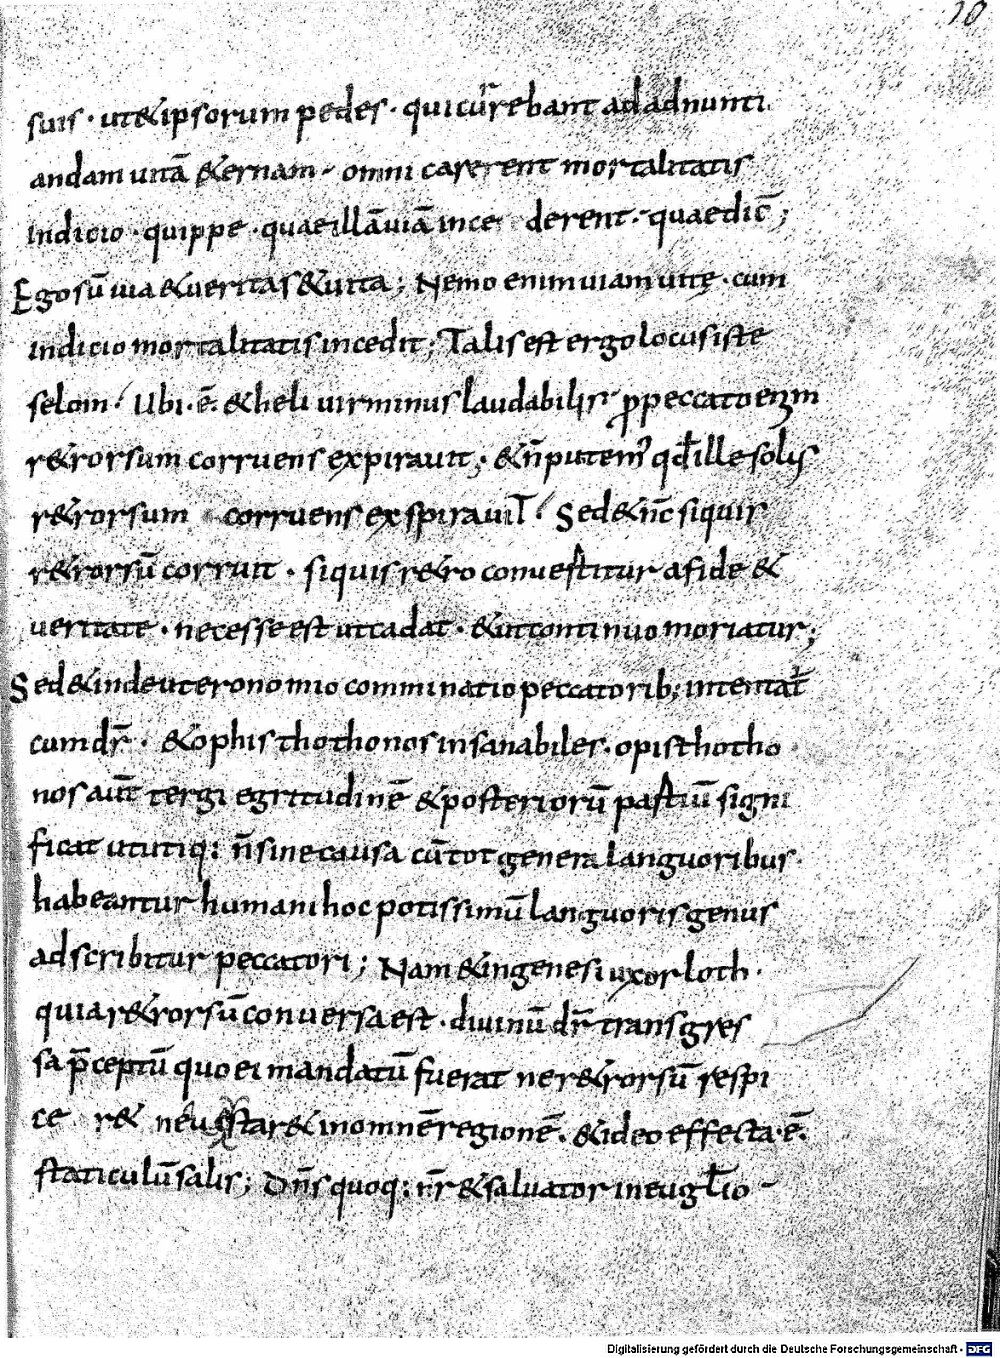 10
suis · ut & ipsorum pedes · qui currebant ad adnunti
andam uitā & ernam · omni carerent mortalitatis
indicio · quippe · quae illā uiā ince derent · quae dic̄ ;
Ego sū uia & ueritas & uita ; Nemo enim uiam uitę · cum
indicio mortalitatis incedit ; Talis est ergo locus iste
selom · Ubi · ē · & heli uir minus laudabilis p̄ peccato enim
r&rorsum corruens expirauit ; & n̄ putem' qđ ille solis
r&rorsum corruens exspirauit · Sed & nc̄ siquis
r&rorsū corruit · si quis r&ro conuestitur a fide &
ueritate · necesse est ut cadat · & ut continuo moriatur ;
Sed & in deuteronomio comminatio peccatorib; intentat̄
cum dr̄ · & ophisthothonos insanabiles · opisthotho
nos aūt tergi egritudinē & posteriorū partiū signi
ficat ut utiq: n̄ sine causa cū tot genera languoribus
habeantur humani hoc potissimū languoris genus
adscribitur peccatori ; Nam & in genesi uxor loth ·
quia r&rorsū conuersa est · diuinū dr̄ transgres
sa p̄ceptū quo ei mandatū fuerat ne r&rorsū respi
ce r& star& in omnē regionē · & ideo effecta · ē ·
staticulū salis ; Dn̄s quoq: nr̄ & saluator in euglīo
Digitalisierung gefördert durch die Deutsche Forschungsgemeinschaft - DFG